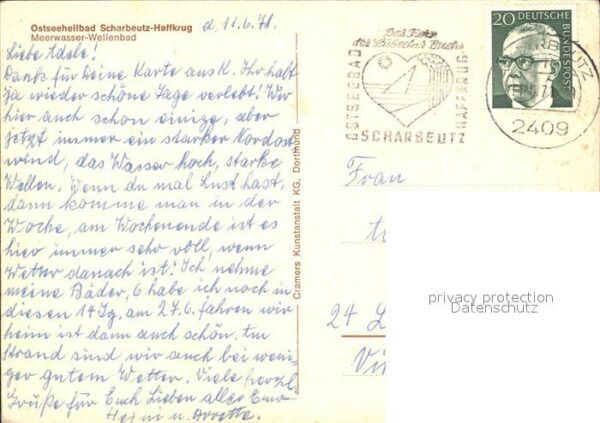 Ostseeheilbad Scharbeutz-Haffkrug
Meerwasser-Wellenbad
d. 11.6.71.
Liebe Adele!
Dank für Deine Karte aus K. Ihr habt
ja wieder schöne Tage verlebt! Wir
hier auch schon einige, aber
jetzt immer ein starker Nordost
wind, das Wasser hoch, starke
Wellen. Wenn du mal Lust hast,
dann komme man in der
Woche, am Wochenende ist es
hier immer sehr voll, wenn
Wetter danach ist! Ich nehme
meine Bäder, 6 habe ich noch in
diesen 14 Tg. am 27.6. fahren wir
heim ist dann auch schön. Am
Strand sind wir auch bei weni-
ger gutem Wetter. Viele herzl.
Grüße für Euch Lieben alles
Heini u.
Cramers Kunstanstalt KG, Dortmund
Das Herz
der Lübecker Bucht
OSTSEEBAD
HAFFKRUG
SCHARBEUTZ
20 DEUTSCHE
BUNDESPOST
2409
Frau
24 L
privacy protection
Datenschutz